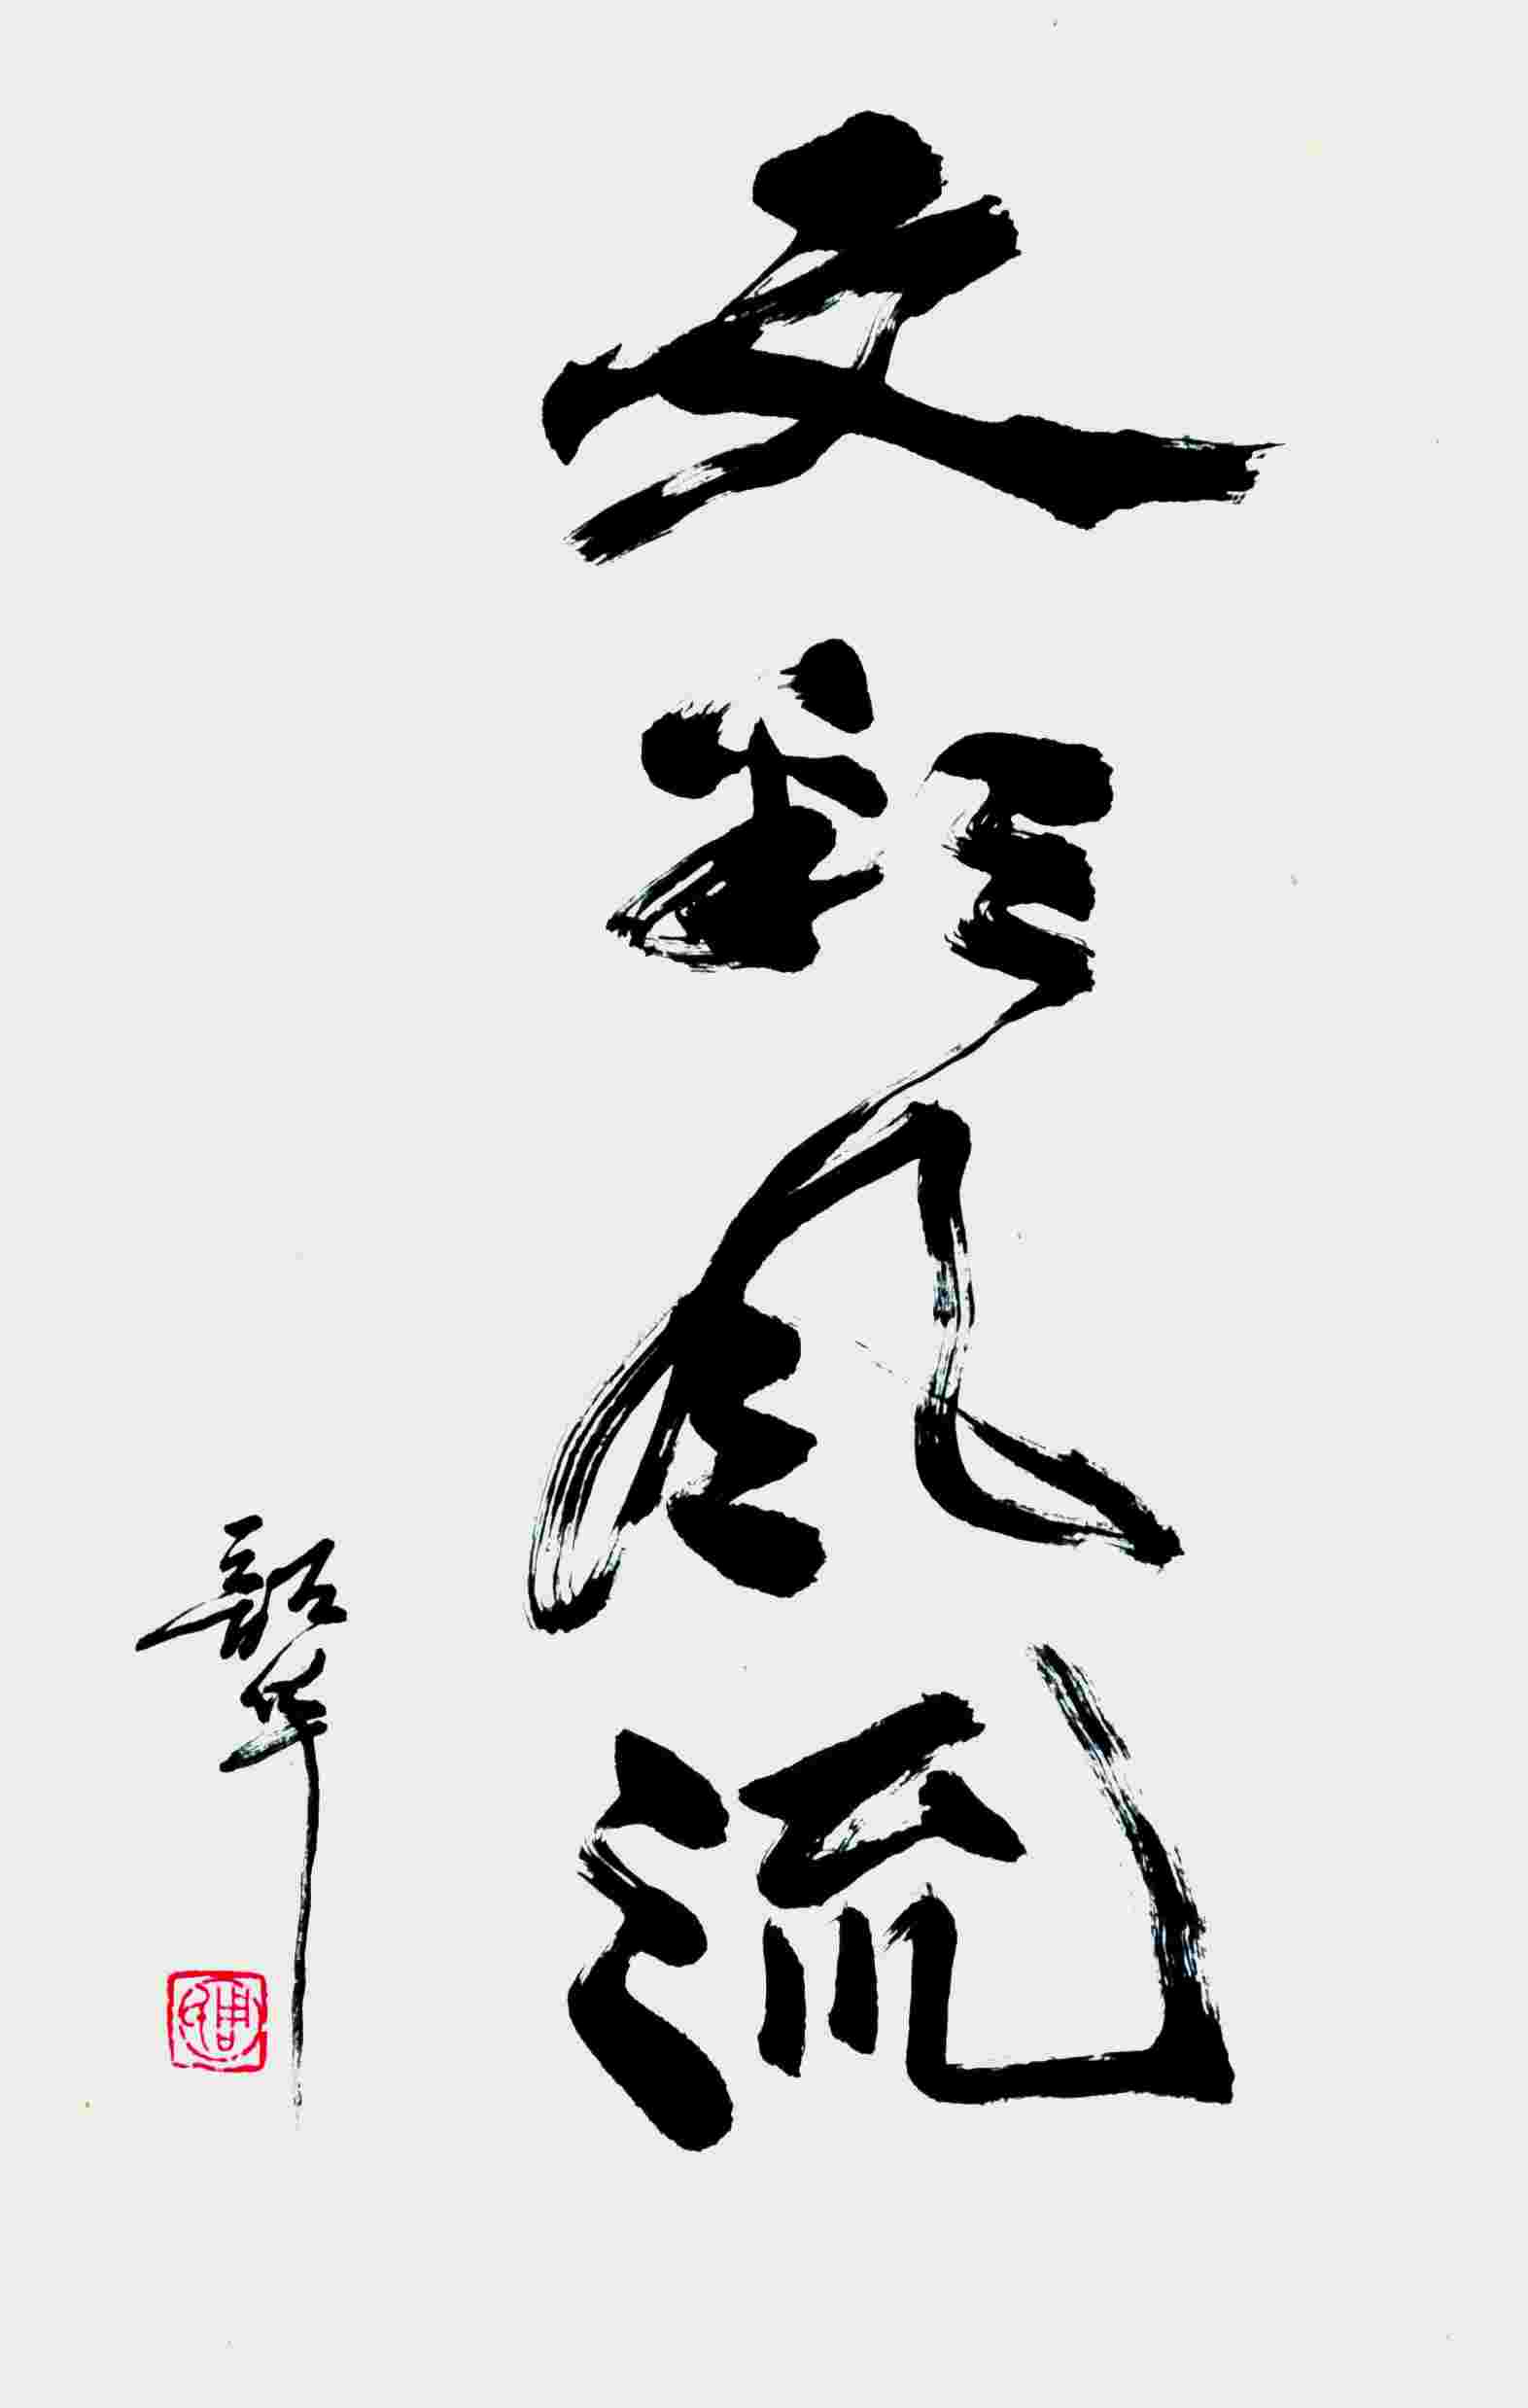 文彩風流
韶华